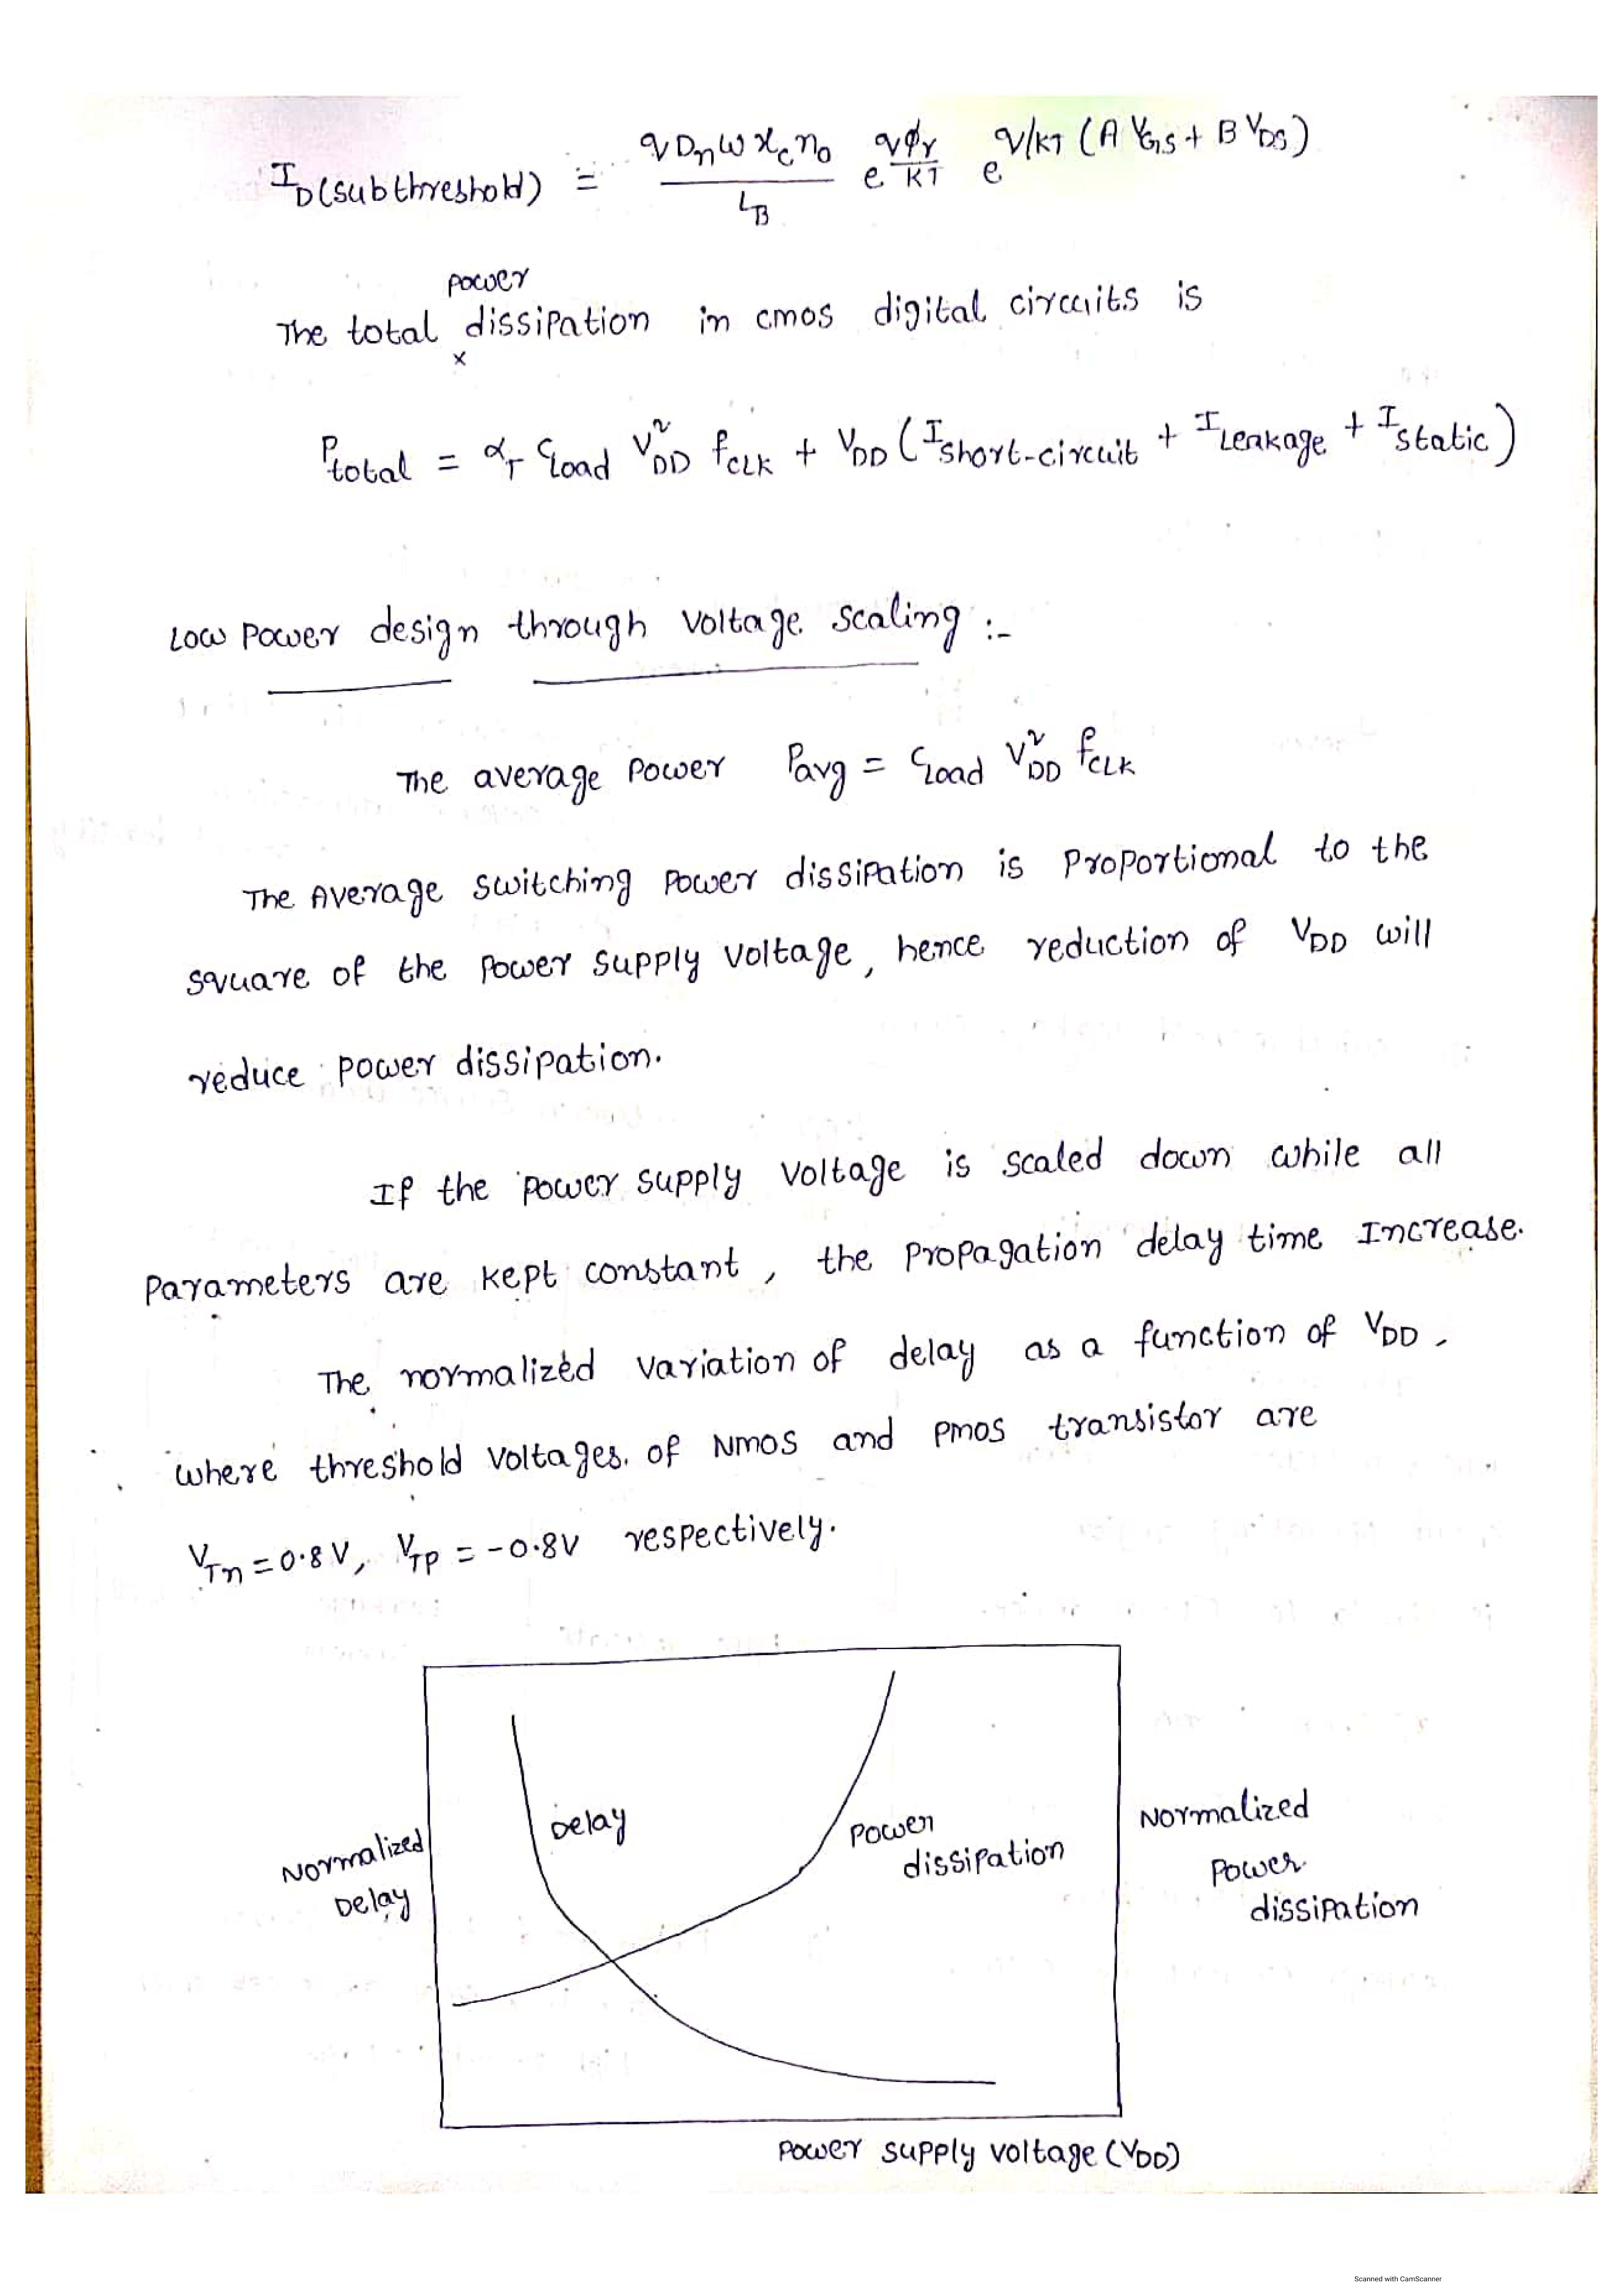 I_D(subthreshold) ≅ qD_n W x_c n_0 / L_B e^(qϕ_r/KT) e^(q/KT (A V_GS + B V_DS))
power
The total dissipation in cmos digital circuits is
x
P_total = α_T C_load V²_DD f_CLK + V_DD (I_short-circuit + I_Leakage + I_static)
Low Power design through Voltage scaling :-
The average Power P_avg = C_load V²_DD f_CLK
The Average switching Power dissipation is Proportional to the
square of the Power supply voltage, hence reduction of V_DD will
reduce power dissipation.
If the power supply voltage is scaled down while all
Parameters are kept constant, the Propagation delay time Increase.
The normalized variation of delay as a function of V_DD.
where threshold voltages. of NMOS and PMOS transistor are
V_Tn = 0.8 V, V_TP = -0.8V respectively.
Delay
Power
dissipation
Normalized
Delay
Normalized
Power
dissipation
Power supply voltage (V_DD)
Scanned with CamScanner